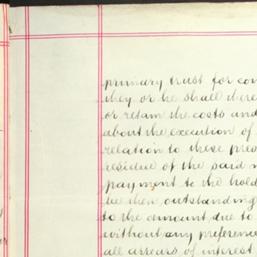 primary trust for con
they or he shall there
or retain the costs and
about the execution of
relation to these pre
residue of the said m
payment to the hold
be then outstanding
to the amount due to
without any preference
all arrears of interest